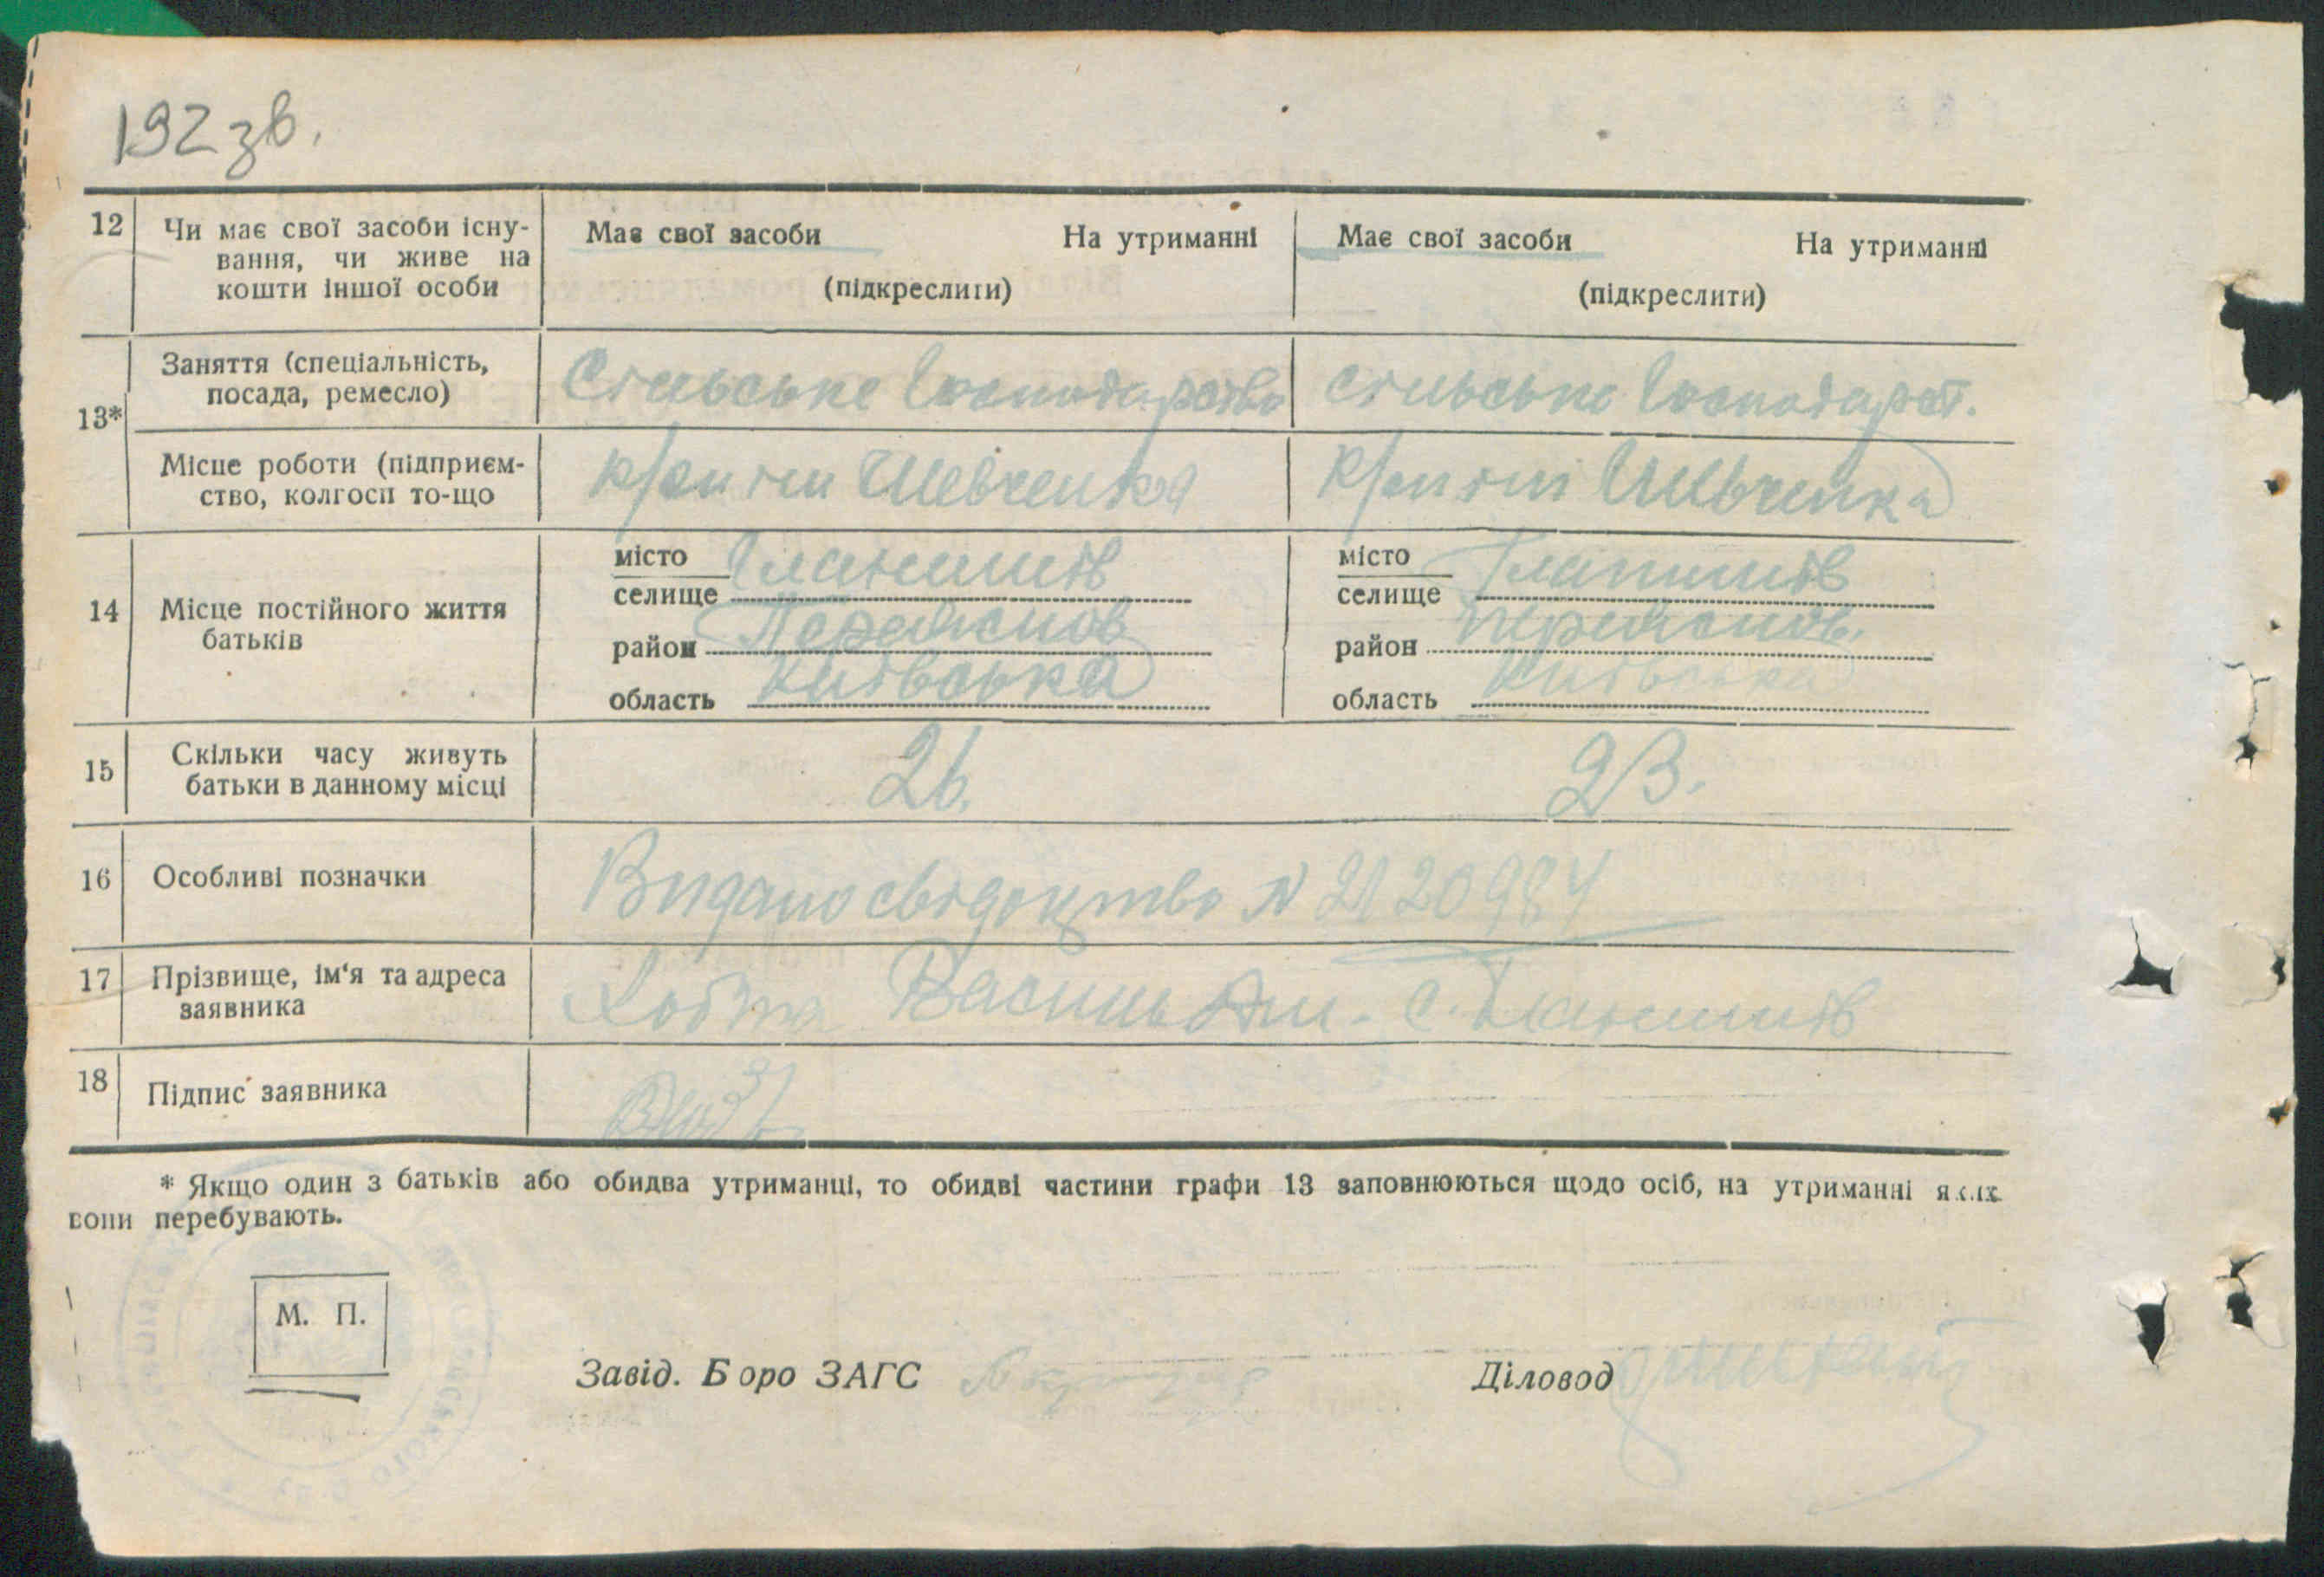 192 зв.
12 Чи має свої засоби існу- Має свої засоби На утриманні Має свої засоби На утриманні
вання, чи живе на
кошти іншої особи (підкреслити) (підкреслити)
13* Заняття (спеціальність, Сільське Господарство сільське Господарст.
посада, ремесло)
Місце роботи (підприєм- Шевченка Шевченка
ство, колгосп то-що
14 Місце постійного життя
батьків
місто Гланишів місто Гланишів
селище селище
район Переяслов район Переяслов.
область Київська область Київська
15 Скільки часу живуть 26. 23.
батьки в данному місці
16 Особливі позначки Видано свідоцтво N 2120984
17 Прізвище, ім'я та адреса Хобта Василь с. Гланишів
заявника
18 Підпис заявника
* Якщо один з батьків або обидва утриманці, то обидві частини графи 13 заповнюються щодо осіб, на утриманні яких
вони перебувають.
М. П.
Завід. Бюро ЗАГС Діловод